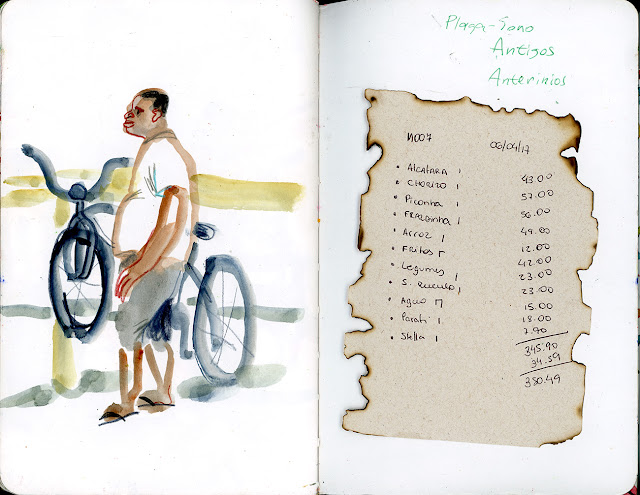 Plaga-Sono
Antigos
Anterinios
M007 06/04/17
• ALCATARA 1 43.00
• CHORIZO 1 57.00
• Piconha 1 56.00
• FRALDINHA 1 49.00
• Arroz 1 12.00
• Fritos 42.00
• Legumes 1 23.00
• S. Rucula 1 23.00
• Agua 15.00
• Parati 1 18.00
• Stella 1 7.90
345.90
34.59
380.49